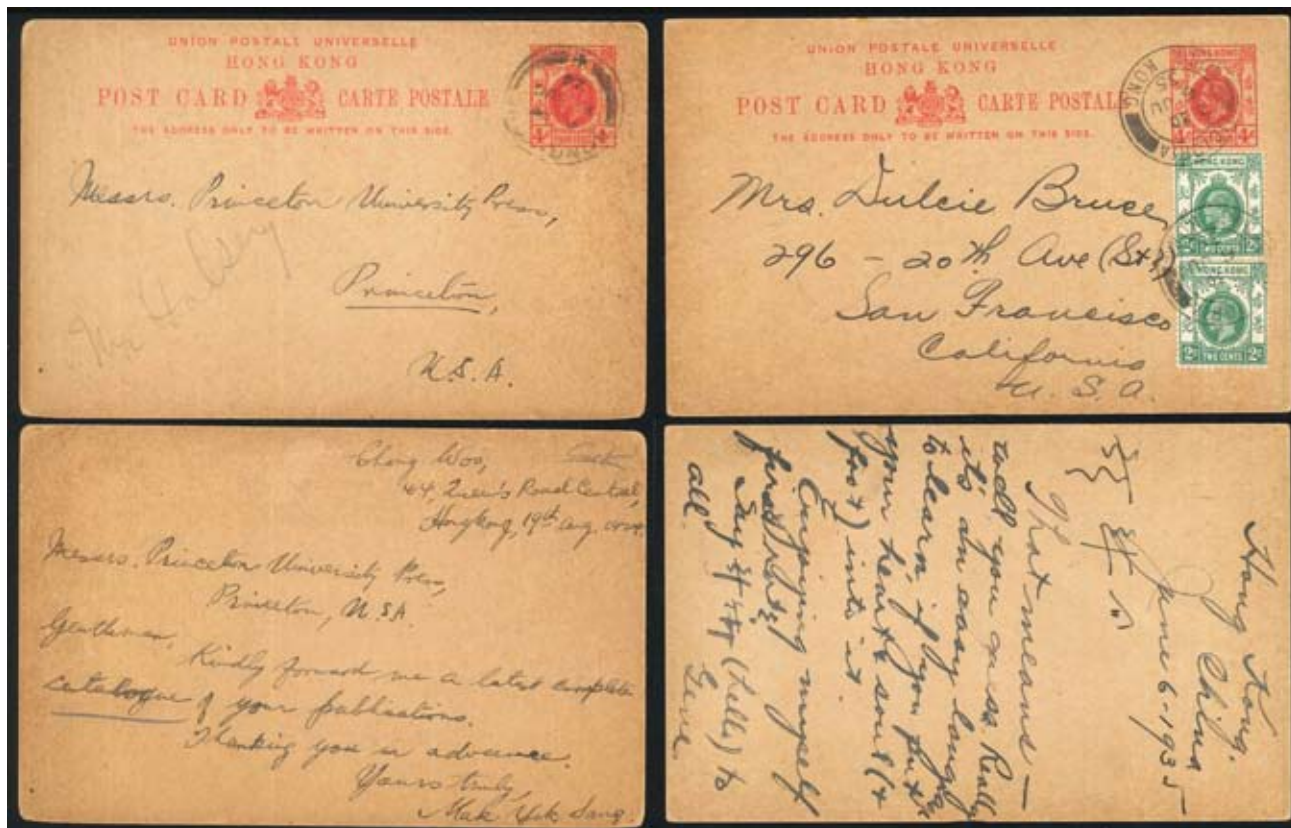 UNION POSTALE UNIVERSELLE
HONG KONG
POST CARD CARTE POSTALE
THE ADDRESS ONLY TO BE WRITTEN ON THIS SIDE.
Messrs. Princeton University Press,
Princeton,
U.S.A.
UNION POSTALE UNIVERSELLE
HONG KONG
POST CARD CARTE POSTALE
THE ADDRESS ONLY TO BE WRITTEN ON THIS SIDE.
HONG KONG
TWO CENTS
HONG KONG
TWO CENTS
Mrs. Dulcie Bruce
296 - 20th Ave
San Francisco
California
U. S. A.
Ching Woo,
44, Queen's Road Central,
Hongkong, 19th Aug.
Messrs. Princeton University Press,
Princeton, U.S.A.
Gentlemen,
Kindly forward me a latest complete
catalogue of your publications.
Thanking you in advance.
Yours truly,
Mak
Hong Kong.
China
June 6-1935
That means —
it's an easy language
to learn if you put
your heart & soul (&
foot) into it.
Enjoying myself
first rate!
Say (hello) to
all
Gene